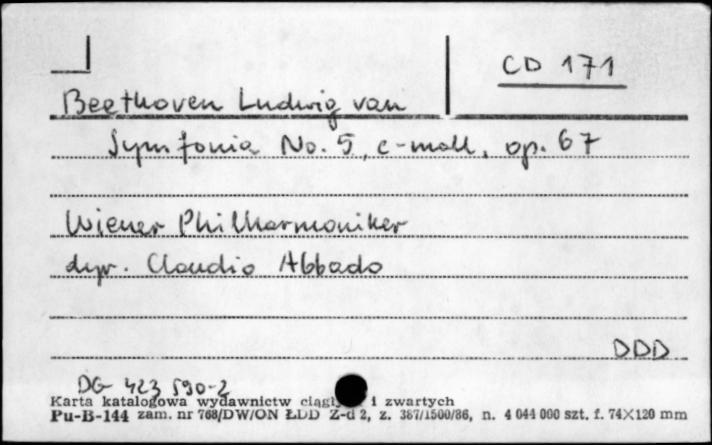 CD 171
Beethoven Ludwig van
Symfonia No. 5, c-moll, op. 67
Wiener Philharmoniker
dyr. Claudio Abbado
DDD
DG 423 590-2
Karta katalogowa wydawnictw i zwartych
Pu-B-144 zam. nr 768/DW/ON ŁDD Z-d 2, z. 387/1500/86, n. 4 044 000 szt. f. 74×120 mm